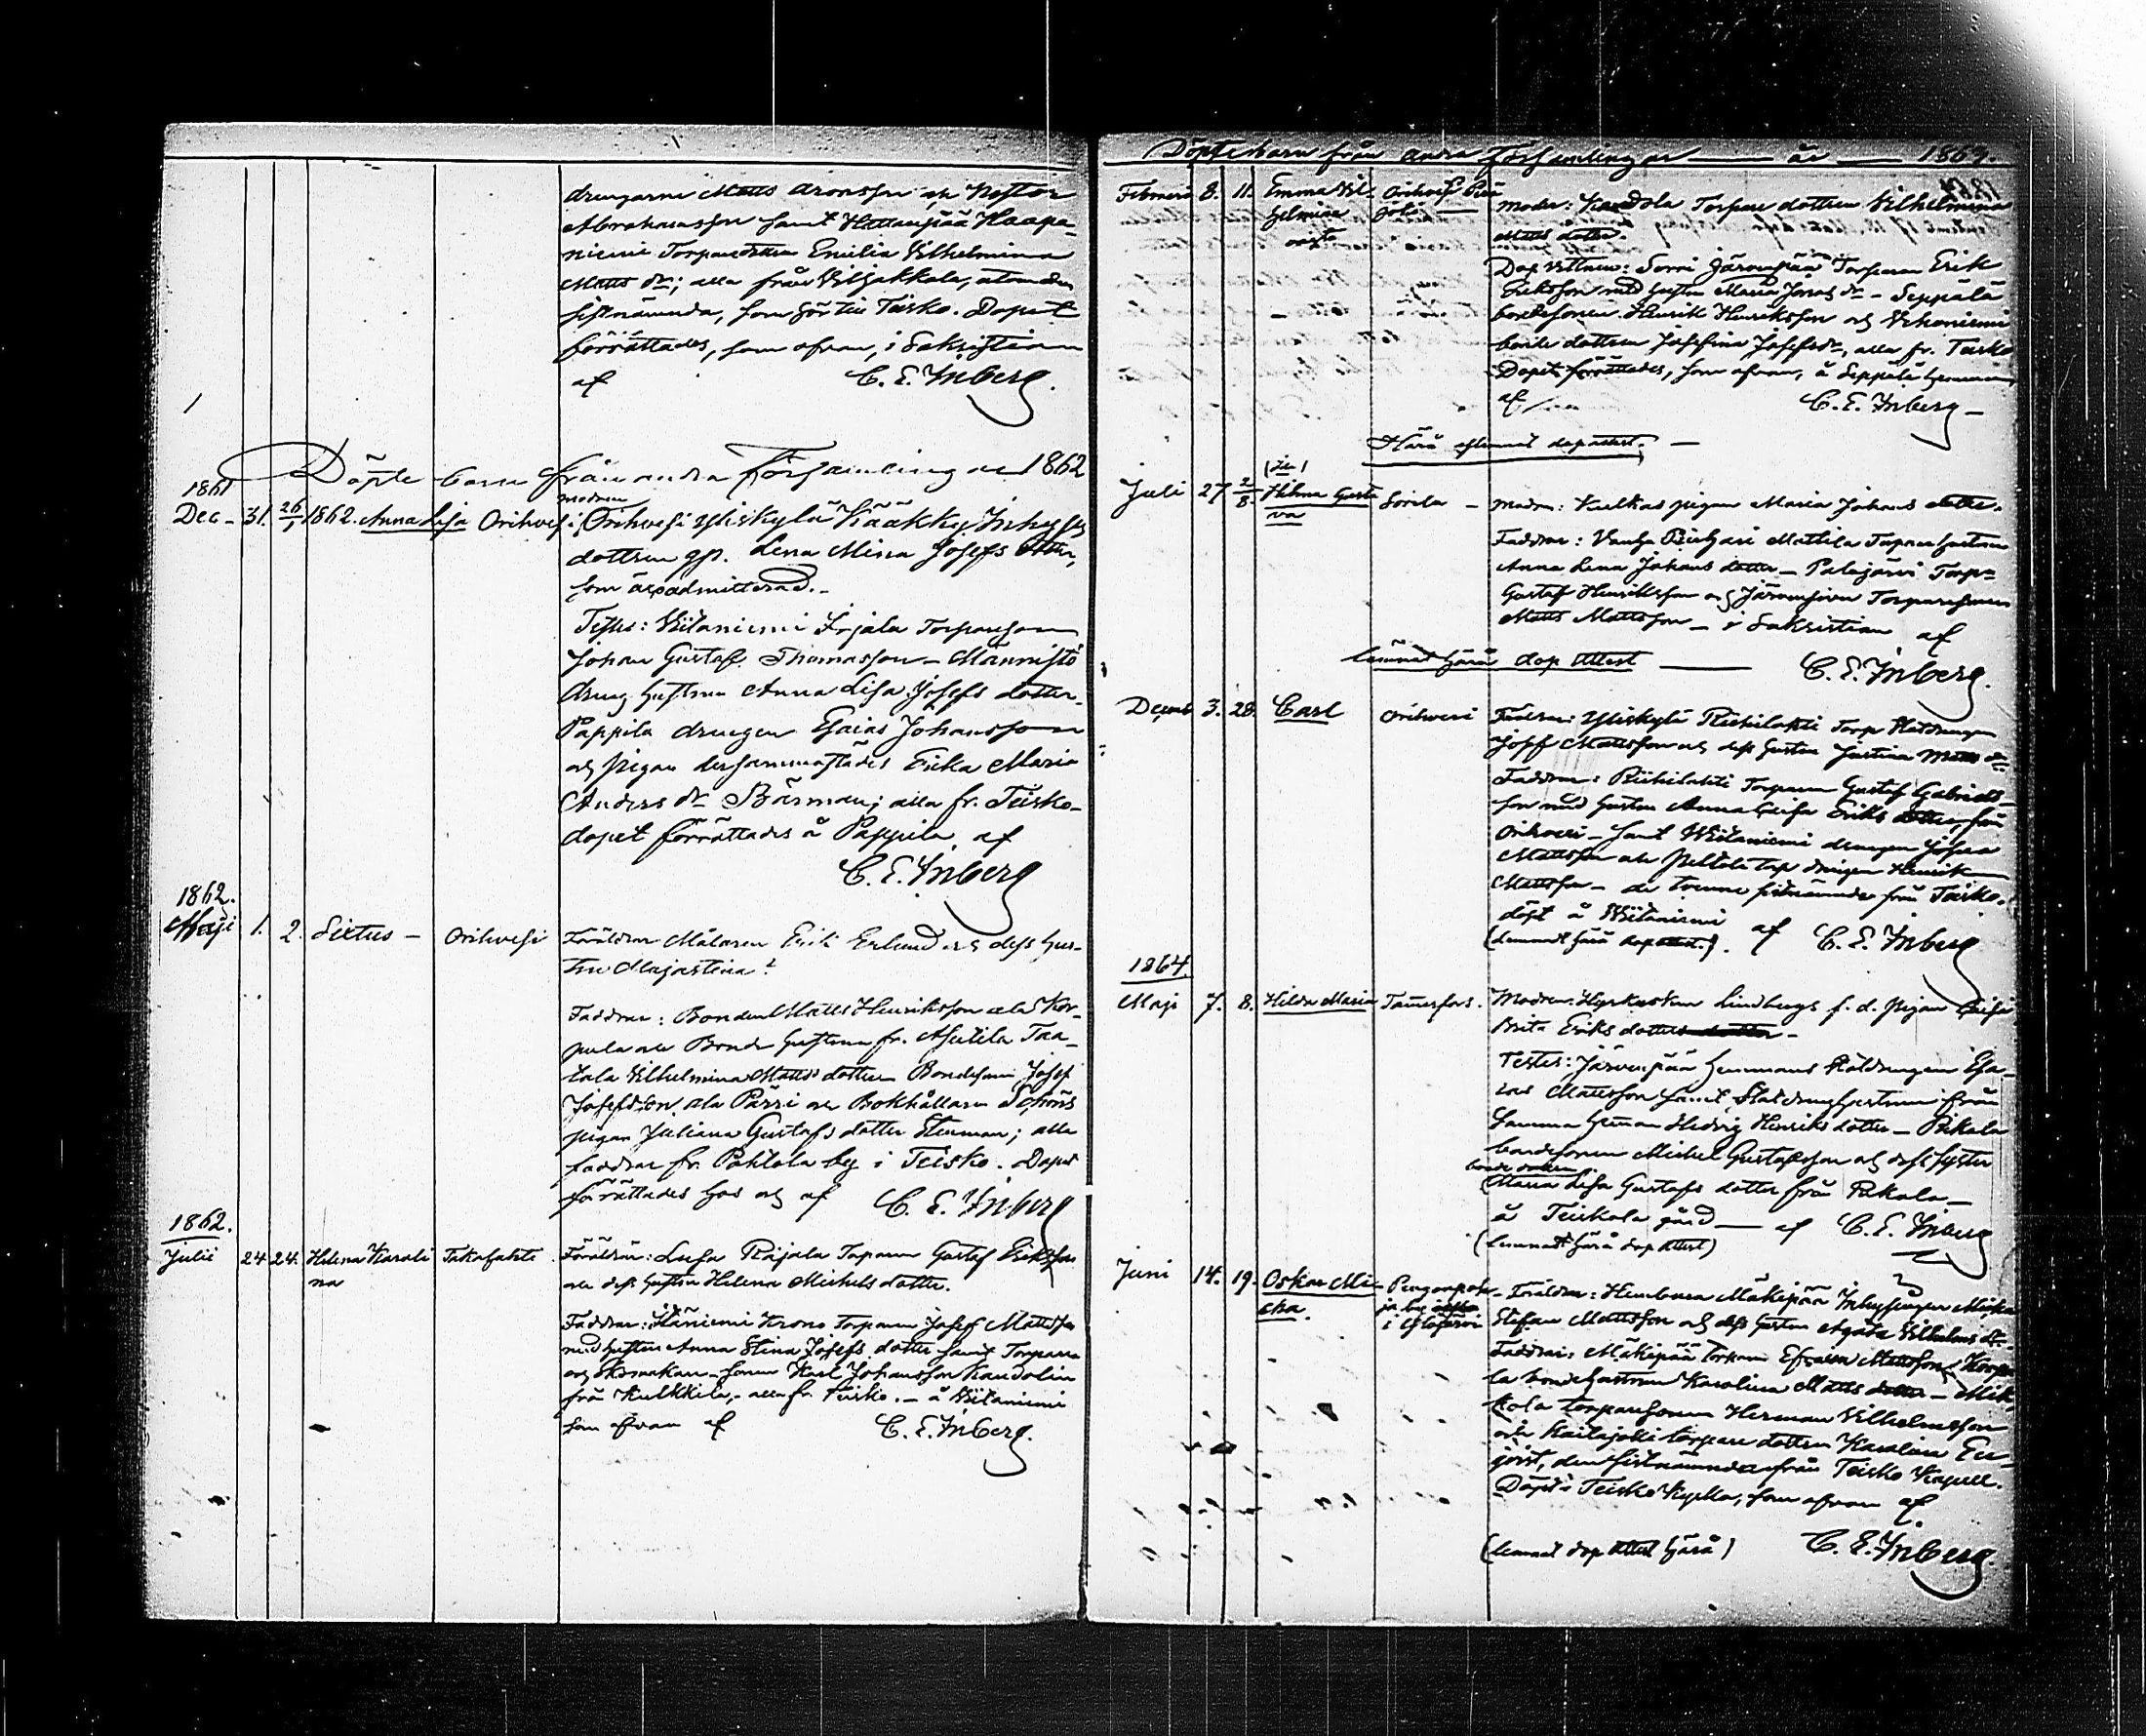 drengarne Matts Aronsson och Nestor
Abrahamsson samt Hattanpää Haapa-
niemi Torparedottern Emilia Vilhelmina
Matts dr; alla från Viljakkala, utom den
sistnämnda, som hör till Teisko. Dopet
förrättades, som ofvan, i Sakristian
af C. E. Inberg.
Döpte barn från andra Församlingar 1862
1861
Dec. 31. 26/1 1862. Anna Lisa Orihvesi
modren
Orihvesi Yliskylä Kääkky Inhyses
dottren gp. Lena Mina Josefs dotter,
som är oadmitterad.
Testes: Viitaniemi Erjala Torparesonen
Johan Gustaf Thomasson - Männistö
dreng hustrun Anna Lisa Josefs dotter.
Pappila drengen Esaias Johansson
och pigan dersammastädes Erika Maria
Anders dr Bärman; alla fr. Teisko -
dopet förrättades å Pappila af
C. E. Inberg
1862.
Maji 1. 2. Sixtus - Orihvesi
Föräldrar Målaren Erik Erlund och dess hus-
tru Majastina
Faddrar: Bonden Matts Henriksson ala Kor-
pula och Bonde hustrun fr.
tala Vilhelmina Matts dotter Bondesonen Josef
Josefsson ala Pärri och Bokhållaren
pigan Juliana Gustafs dotter Stenman; alla
faddrar fr. Pohtola by i Teisko. Dopet
förrättades hos och af C. E. Inberg
1862.
Julii 24 24. Helena Karoli
na
Föräldrar: Rajala Torparen Gustaf Eriksson
och dess hustru Helena Mickels dotter.
Faddrar: Torparen Josef Mattsson
med hustrun Anna Stina Josefs dotter samt Torpare
och Skomakare-sonen Karl Johansson Kandolin
från Kulkkila, alla fr. Teisko. - å Viitaniemi
som ofvan af C. E. Inberg.
Döpte barn från andra Församlingar — år — 1863.
Februari 8. 11. Emma Vil-
helmina
Moder: Kandola Torpare dottren Vilhelmina
Matts dotter.
Dop vittnen: Sorri Järvenpää Torparen Erik
Eriksson med hustru Maria Jonas dr - Seppälä
bondesonen Henrik Henriksson och
bonde dottren Josefina Josefsdr, alla fr. Teisko
Dopet förrättades, som ofvan, å Seppälä hemman
af C. E. Inberg -
Härå aflemnat dopattest. —
Juli 27 2/8. Hilma Gusta
va
Sorila -
Modren: Kulkas pigan Maria Johans dotter.
Faddrar: Mattila Torpare hustrun
Anna Lena Johans dotter - Palojärvi Torp:
Gustaf Henriksson och Järvensivu Torparesonen
Matts Mattsson - i Sakristian af
lemnat härå dop attest — C. E. Inberg.
Decemb 3. 28. Carl Orihvesi
Föräldrar: Yliskylä Torp Statdrengen
Matsson och dess hustru Justina Matts dr.
Faddrar: Torparen Gustaf Gabriels-
son med hustru Anna Caisa Eriks dotter, från
Orihvesi - samt Viitaniemi drengen Johan
Mattsson och Peltola torp drängen Henrik
Mattsson - de tvenne sistnämnde från Teisko.
döpt å Viitaniemi af C. E. Inberg
(Lemnat härå dop attest.)
1864.
Maji 7. 8. Hilda Maria Tammerfors.
Modren: Lindbergs f. d. pigan Caisa
Brita Eriks dotter
Testes: Järvenpää Hemmans Statdrengen Esa-
ias Mattsson samt Statdrenghustrun från
samma heman Hedvig Henriks dotter - Pakala
bondesonen Mickel Gustafsson och dess syster
bonde dottren
Maria Lisa Gustafs dotter från Pakala -
å Teiskola gård — af C. E. Inberg
(lemnat härå dop attest)
Juni 14. 19. Oskar Mi-
cka.
Föräldrar: Mäkipää Inhysingen Mickel
Stefan Mattsson och dess hustru Agata Vilhelms dr.
Faddrar: Mäkipää torparen Efraim Mattsson, Korpu
la bondehustrun Karolina Matts dotter - Mik-
kola torparesonen Herman Vilhelmsson
och torpare dottren Karolina
den sistnämnda från Teisko Kapell.
Döpt i Teisko Kyrka, som ofvan af
(lemnat dop attest härå) C. E. Inberg.